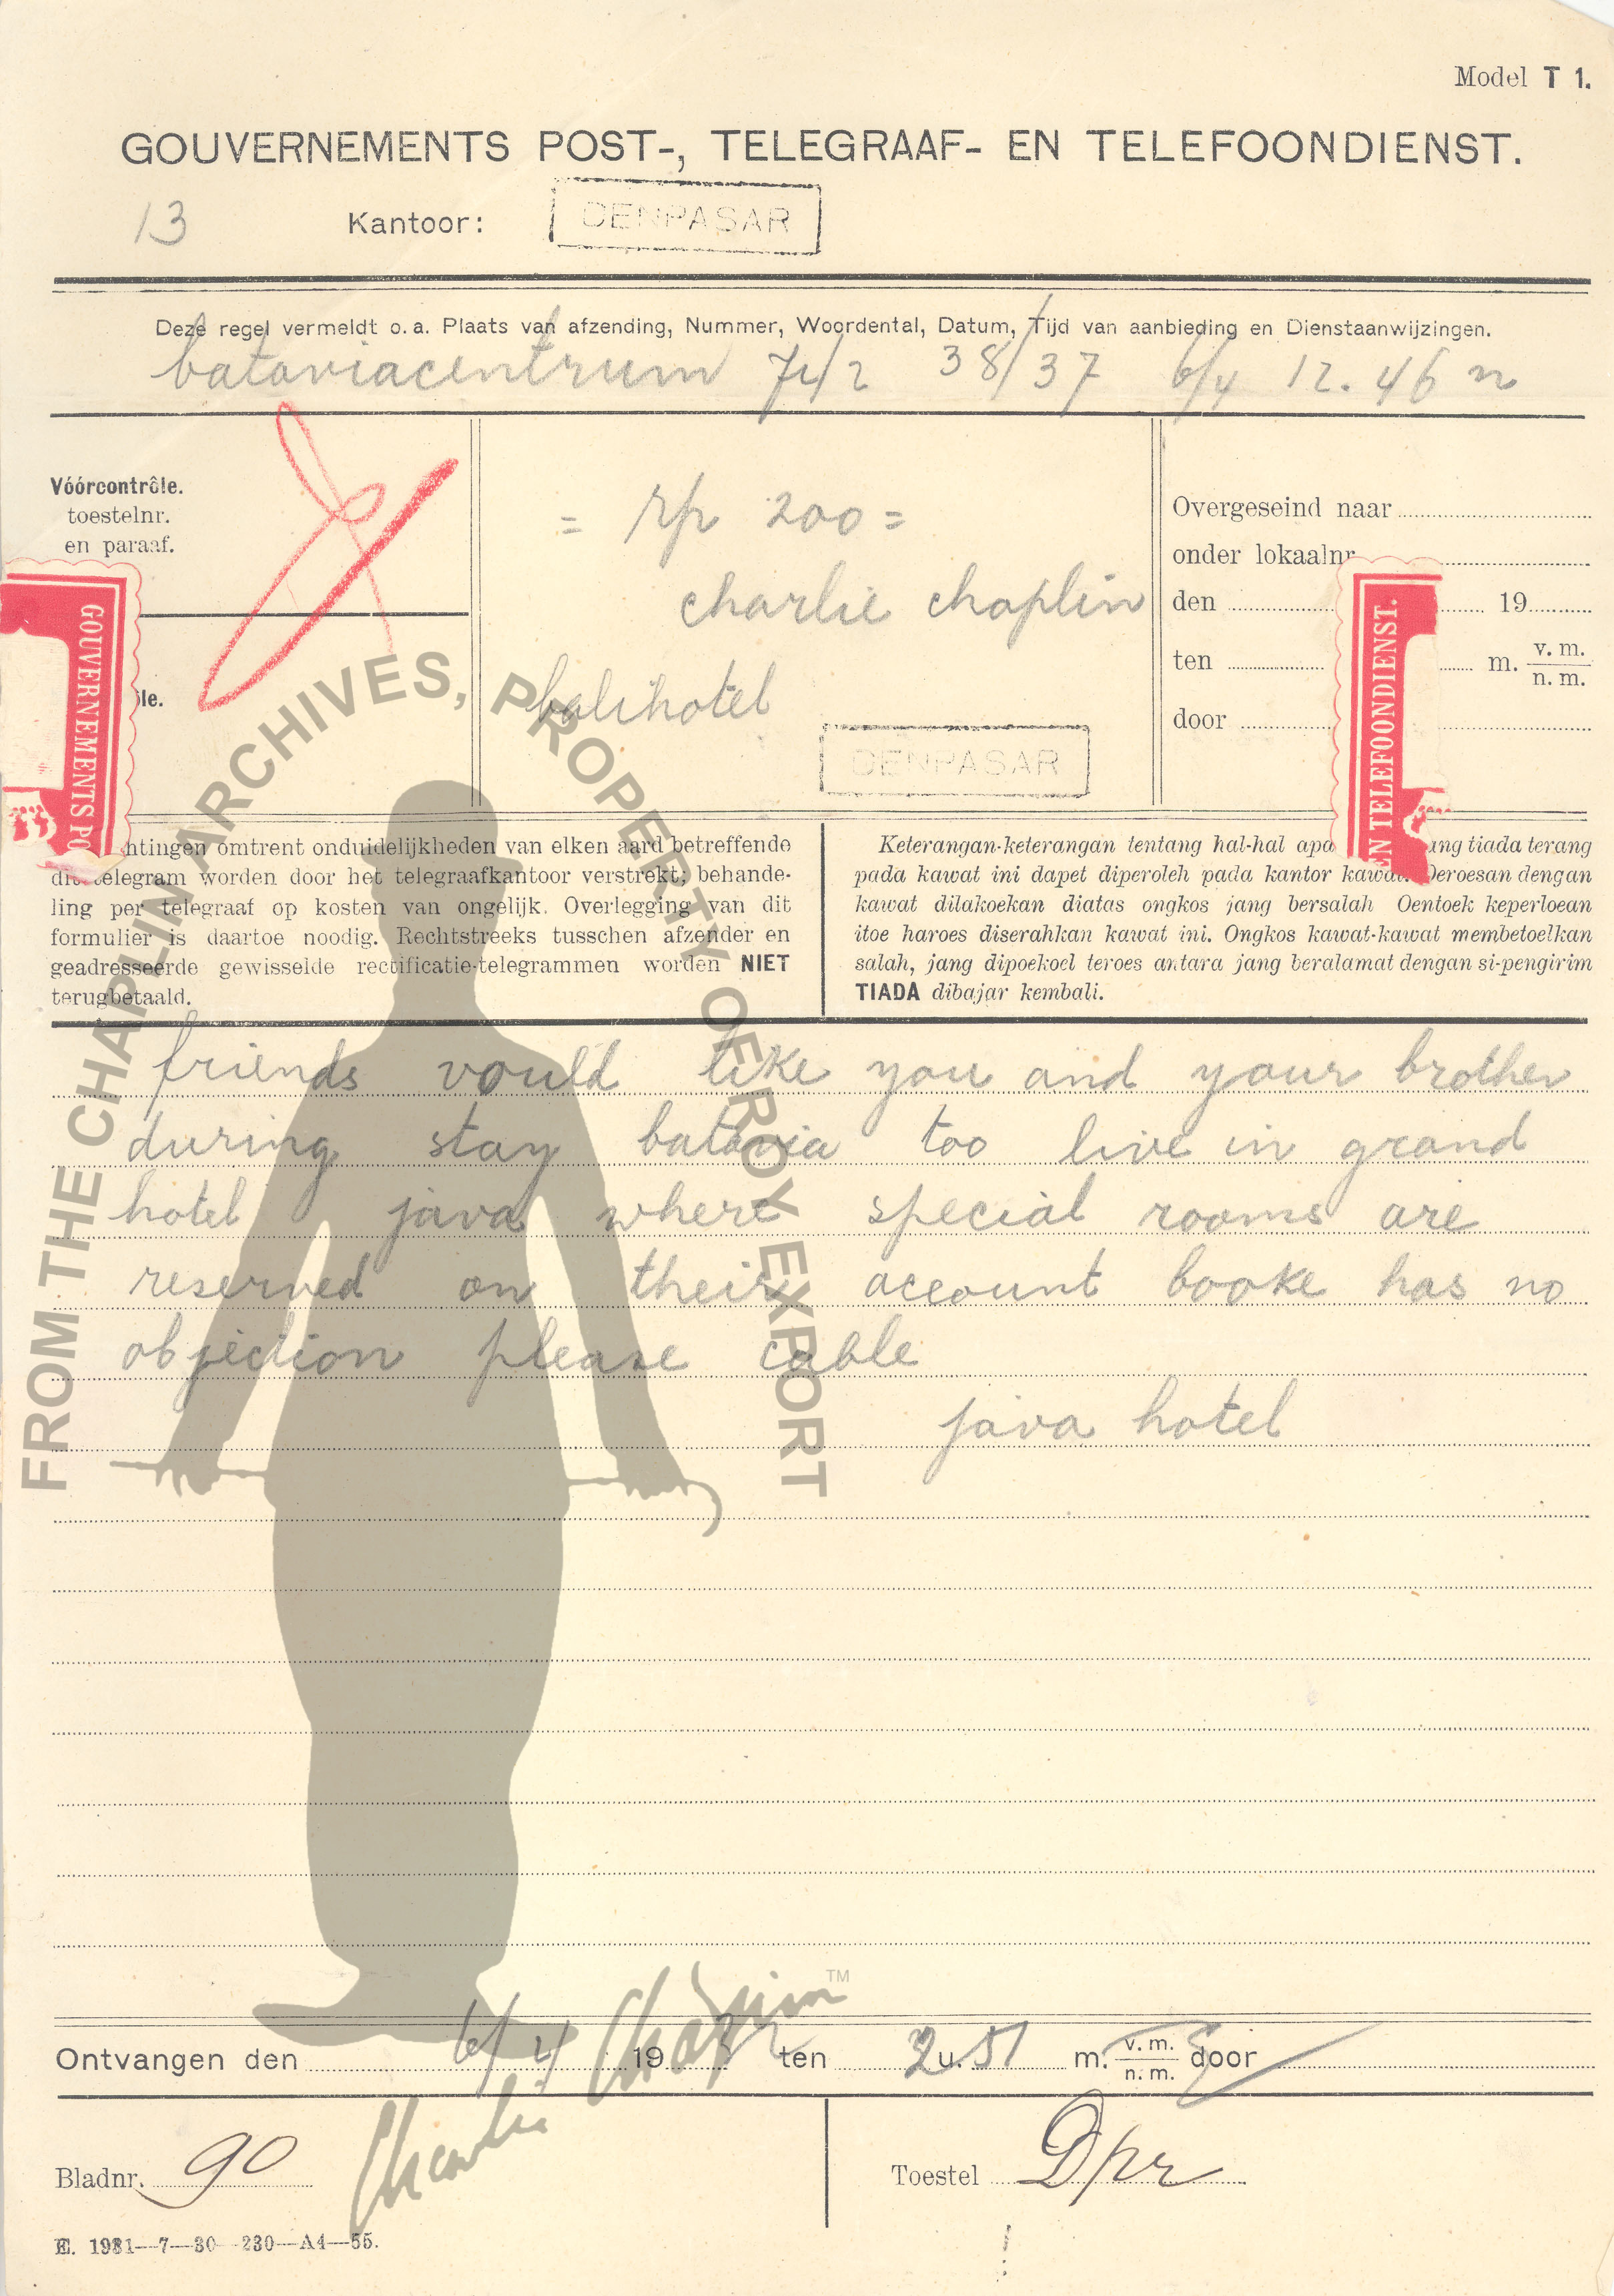 Model T 1.
GOUVERNEMENTS POST-, TELEGRAAF- EN TELEFOONDIENST.
13 Kantoor: DENPASAR
Deze regel vermeldt o.a. Plaats van afzending, Nummer, Woordental, Datum, Tijd van aanbieding en Dienstaanwijzingen.
bataviacentrum 38/37 6/4 12.46 n
Vóórcontrôle.
toestelnr.
en paraaf.
= rp 200 =
charlie chaplin
balihotel
DENPASAR
Overgeseind naar
onder lokaalnr
den 19
ten m. v.m. n.m.
door
le.
GOUVERNEMENTS PO
EN TELEFOONDIENST.
htingen omtrent onduidelijkheden van elken aard betreffende
dit telegram worden door het telegraafkantoor verstrekt; behande-
ling per telegraaf op kosten van ongelijk. Overlegging van dit
formulier is daartoe noodig. Rechtstreeks tusschen afzender en
geadresseerde gewisselde rectificatie-telegrammen worden NIET
terugbetaald.
Keterangan-keterangan tentang hal-hal apa ang tiada terang
pada kawat ini dapet diperoleh pada kantor kawat. Oeroesan dengan
kawat dilakoekan diatas ongkos jang bersalah Oentoek keperloean
itoe haroes diserahkan kawat ini. Ongkos kawat-kawat membetoelkan
salah, jang dipoekoel teroes antara jang beralamat dengan si-pengirim
TIADA dibajar kembali.
friends vould like you and your brother
during stay batavia too live in grand
hotel java where special rooms are
reserved on their account booke has no
objection please cable
java hotel
FROM THE CHAPLIN ARCHIVES, PROPERTY OF ROY EXPORT
Charlie Chaplin TM
Ontvangen den 6/4 1932 ten 2u.51 m. v.m. n.m. door
Bladnr. 90 Toestel Dpr
E. 1931—7—30—230—A4—55.